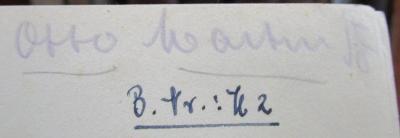 Otto Martin
B. Nr.: H 2